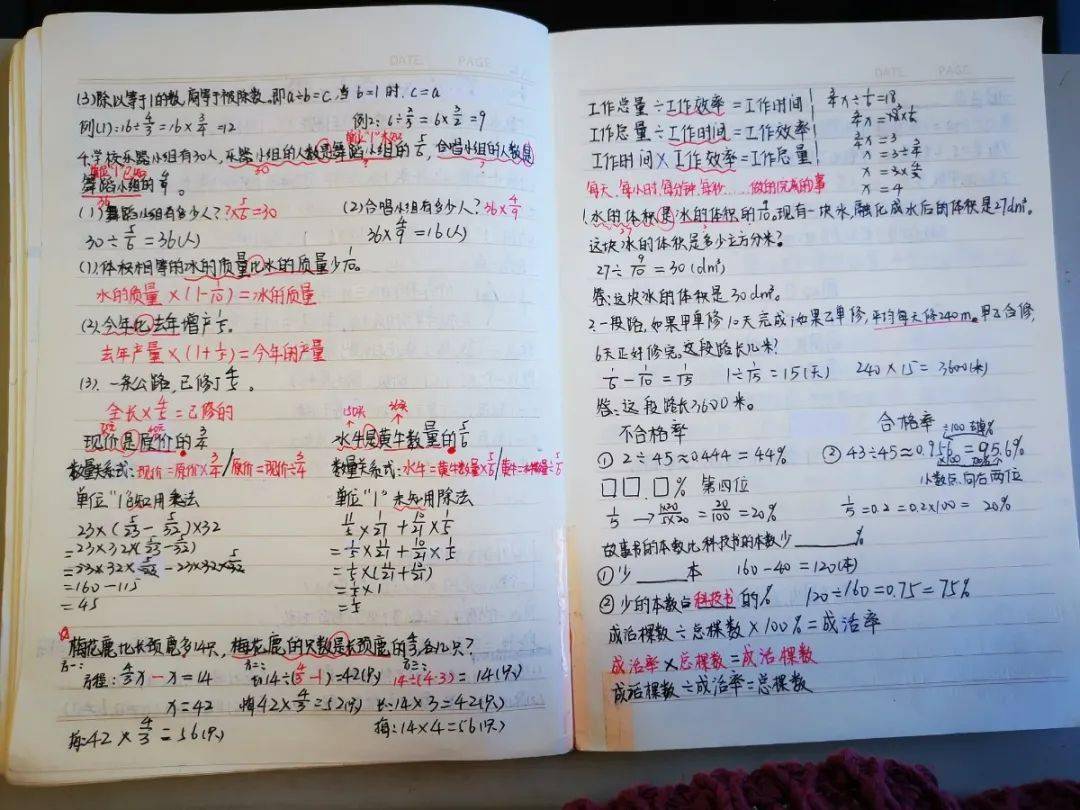 DATE PAGE
(3)除以等于1的数,商等于被除数。即a÷b=c,当b=1时.c=a
例(1):16÷4/3=16×3/4=12 例2:6÷2/3=6×3/2=9
单位"1"未知
4.学校乐器小组有30人,乐器小组的人数是舞蹈小组的5/6,合唱小组的人数是
30
单位"1"已知
舞蹈小组的4/9。
36
(1)舞蹈小组有多少人??×5/6=30 (2)合唱小组有多少人?36×4/9
30÷5/6=36(人) 36×4/9=16(人)
(1).体积相等的冰的质量比水的质量少1/10。
水的质量×(1-1/10)=冰的质量
(2).今年比去年增产1/5。
去年产量×(1+1/5)=今年的产量
(3).一条公路,已修了4/5。
全长×4/5=已修的
150头
现价是原价的3/4 水牛是黄牛数量的5/6
数量关系式:现价=原价×3/4/原价=现价÷3/4 数量关系式:水牛=黄牛数量×5/6/黄牛=水牛数量÷5/6
单位"1"已知用乘法 单位"1"未知用除法
23×(5/23-5/32)×32 11/5×1/21+10/21×1/5
=23×32×(5/23-5/32) =1/5×11/21+10/21×1/5
=23×32×5/23-23×32×5/32 =1/5×(11/21+10/21)
=160-115 =1/5×1
=45 =1/5
梅花鹿比长颈鹿多14只,梅花鹿的只数是长颈鹿的4/3,各几只?
方一: 方二: 方三:
方程:4/3x-x=14 长14÷(4/3-1)=42(只) 14÷(4-3)=14(只)
x=42 梅42×4/3=52(只) 长:14×3=42(只)
梅:42×4/3=56(只) 梅:14×4=56(只)
DATE PAGE
工作总量÷工作效率=工作时间 3/4x÷1/6=18
工作总量÷工作时间=工作效率 3/4x=18×1/6
工作时间×工作效率=工作总量 3/4x=3
x=3÷3/4
x=3×4/3
x=4
每天、每小时、每分钟、每秒……做的完成的事
1.水的体积是冰的体积的9/10。现有一块冰,融化成水后的体积是27dm³。
27
这块冰的体积是多少立方分米?
27÷9/10=30(dm³)
答:这块冰的体积是30dm³。
2.一段路,如果甲单修10天完成;如果乙单修,平均每天修240m。甲乙合修,
6天正好修完。这段路长几米?
1/6-1/10=1/15 1÷1/15=15(天) 240×15=3600(米)
答:这段路长3600米。
不合格率 合格率
①2÷45≈0.444=44% ②43÷45≈0.956=95.6%
□□.□% 第四位 小数点向右两位
1/5→1×20/5×20=20/100=20% 1/5=0.2=0.2×100=20%
故事书的本数比科技书的本数少______%
①少______本 160-40=120(本)
②少的本数占科技书的% 120÷160=0.75=75%
成活棵数÷总棵数×100%=成活率
成活率×总棵数=成活棵数
成活棵数÷成活率=总棵数